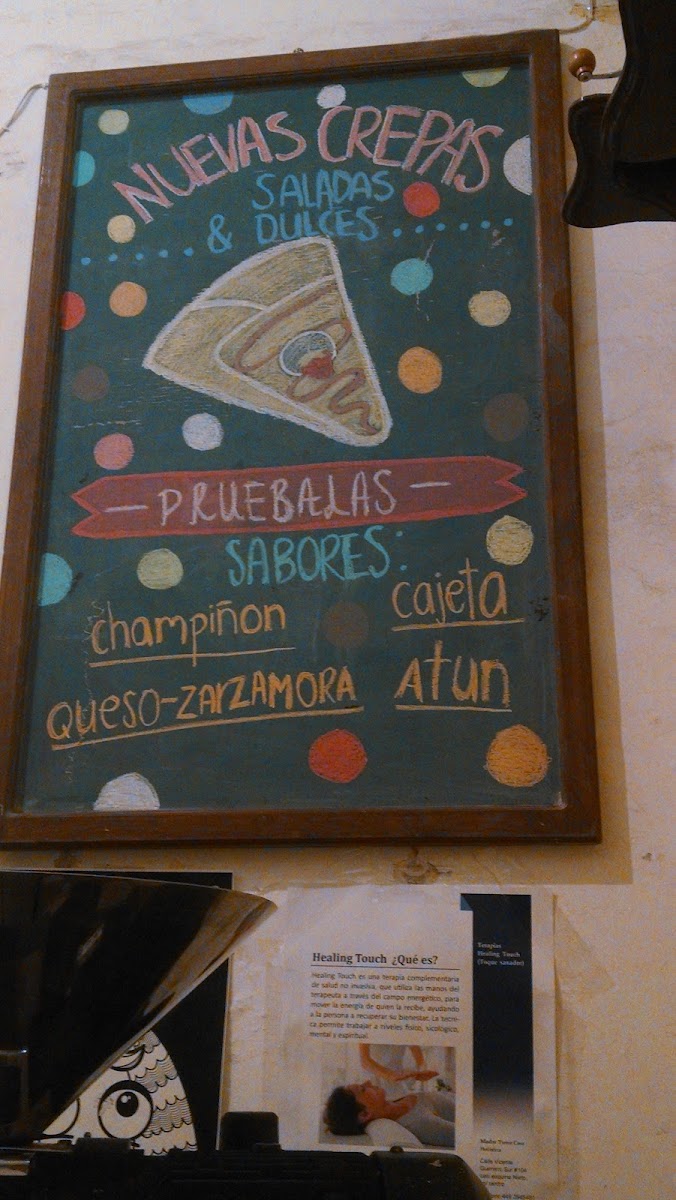 NUEVAS CREPAS
SALADAS
& DULCES
- PRUEBALAS -
SABORES:
champiñon
cajeta
QUESO-ZARZAMORA
Atun
Healing Touch ¿Qué es?
Healing Touch es una terapia complementaria
de salud no invasiva, que utiliza las manos del
terapeuta a través del campo energético, para
mover la energía de quien la recibe, ayudando
a la persona a recuperar su bienestar. La técni-
ca permite trabajar a niveles físico, sicológico,
mental y espiritual.
Terapias
Healing Touch
(Toque sanador)
Calle Vicente
Guerrero Sur #104